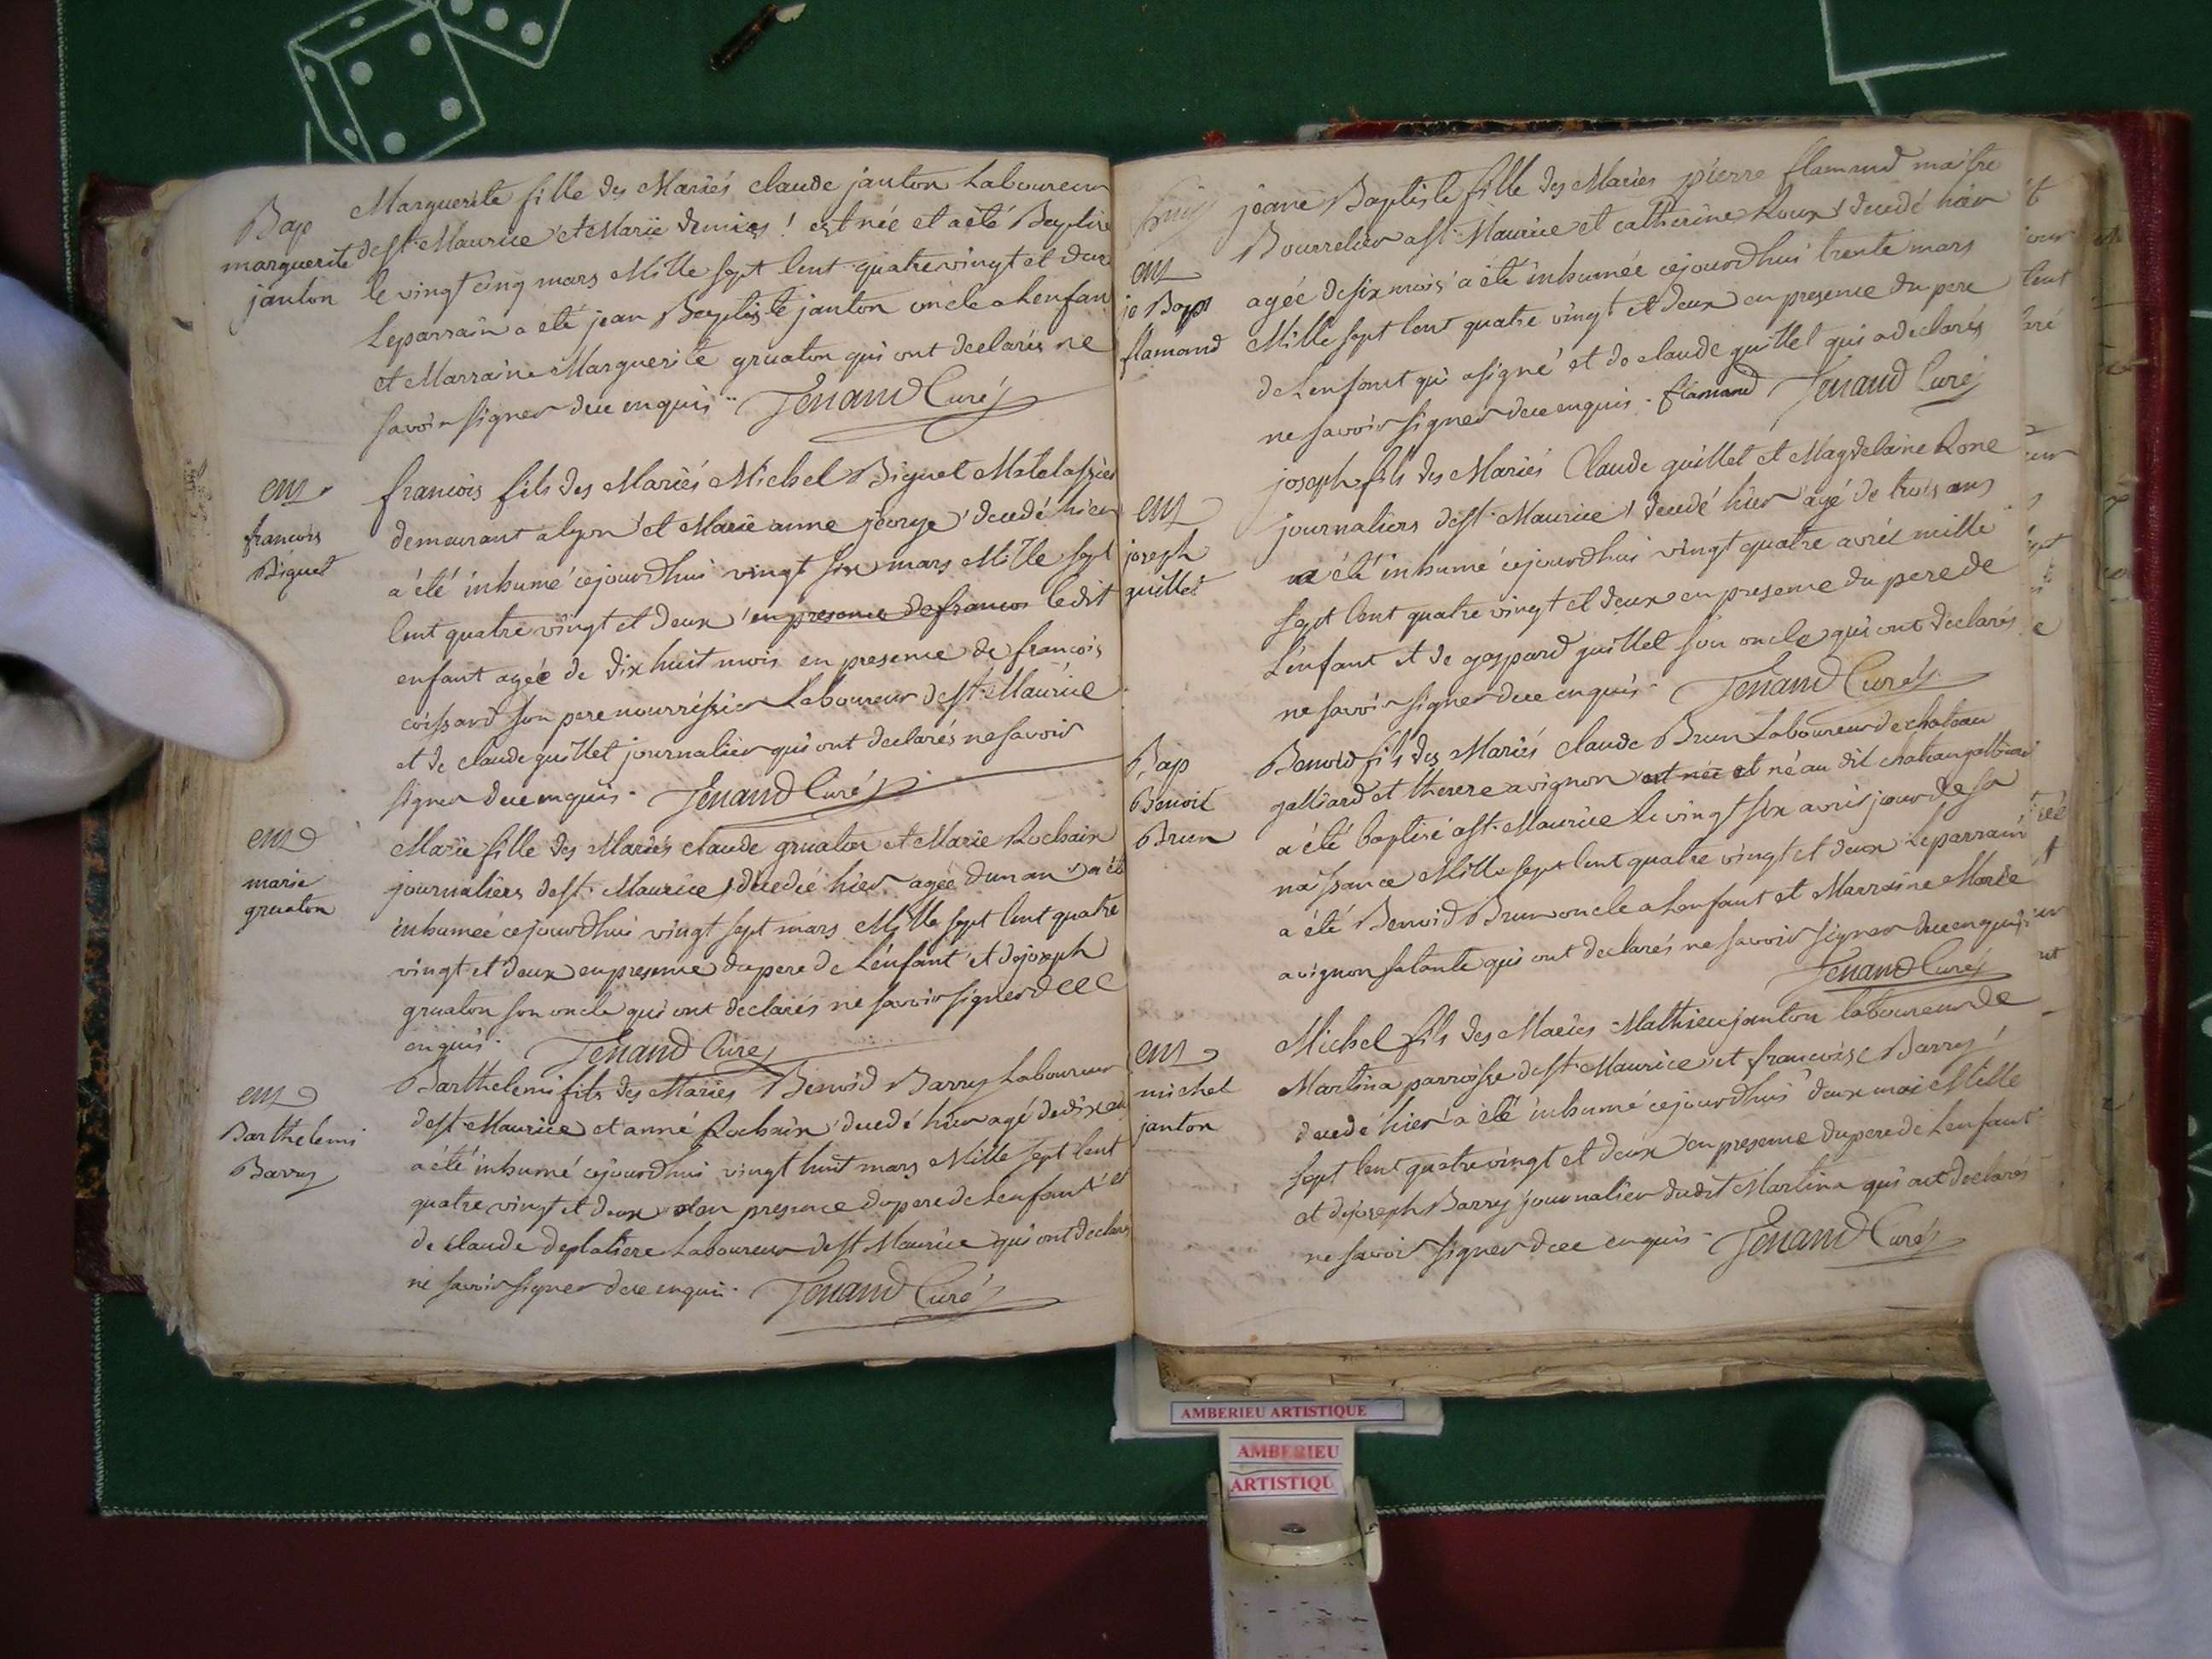 Bap
marguerite
janton
Marguerite fille des Mariés claude janton Laboureur
de st. Maurice et Marie demies ! est née et a été Baptise
le vingt cinq mars Mille sept Cent quatre vingt et deux
Le parrain a été jean Baptiste janton oncle a Lenfan
et Marraine Marguerite gruaton qui ont declarés ne
savoir signer de ce enquis Tenand Curé
em
francois
Biguet
francois fils des Mariés Michel Biguet Matelassier
demeurant a lyon et Marie anne jeorge decedé hier
a été inhumé cejourdhui vingt six mars Mille sept
Cent quatre vingt et deux en presence de francois ledit
enfant agée de dix huit mois en presence de francois
coissard son pere nourrissier Laboureur de st. Maurice
et de claude guillet journalier qui ont declarés ne savoir
signer de ce enquis. Tenand Curé
em
marie
gruaton
Marie fille des Mariés claude gruaton et Marie Rochain
journaliers de st. Maurice decedée hier agée dun an a été
inhumée cejourdhui vingt sept mars Mille sept Cent quatre
vingt et deux en presence du pere de Lenfant et de joseph
gruaton son oncle qui ont declarés ne savoir signer de ce
enquis. Tenand Curé
em
Barthelemi
Barry
Barthelemi fils des Mariés Benoid Barry Laboureur
de st Maurice et anne Rochain decedé hier agé de dix an
a été inhumé cejourdhui vingt huit mars Mille sept Cent
quatre vingt et deux en presence du pere de Lenfant et
de claude deplatiere Laboureur de st Maurice qui ont declarés
ne savoir signer de ce enquis. Tenand Curé
em
je Bapt
flamand
jeane Baptiste fille des Mariés pierre flamand maitre
Bourrelier a st. Maurice et catherine Roux decedé hier
agée de six mois a été inhumée cejourdhui trente mars
Mille sept Cent quatre vingt et deux en presence du pere
de Lenfant qui a signé et de claude guillet qui a declarés
ne savoir signer de ce enquis. flamand Tenand Curé
em
joseph
guillet
joseph fils des Mariés Claude guillet et Magdelaine Rone
journaliers de st. Maurice decedé hier agé de trois ans
a été inhumé cejourdhui vingt quatre avril mille
sept Cent quatre vingt et deux en presence du pere de
Lenfant et de gaspard guillet son oncle qui ont declarés
ne savoir signer de ce enquis. Tenand Curé
Bap
Benoit
Brun
Benoid fils des Mariés claude Brun Laboureur de chateau
galliard et therere avignon est née et né au dit chateau galliard
a été baptisé a st. Maurice le vingt six avril jour de sa
naissance Mille sept Cent quatre vingt et deux Le parrain
a été Benoid Brun oncle a Lenfant et Marraine Marie
avignon sa tante qui ont declarés ne savoir signer de ce enquis
Tenand Curé
em
michel
janton
Michel fils des Mariés Mathieu janton laboureur de
Martina parroisse de st. Maurice et francoise Barry
decedé hier a été inhumé cejourdhui deux mai Mille
sept Cent quatre vingt et deux en presence du pere de Lenfant
et de joseph Barry journalier dudit Martina qui ont declarés
ne savoir signer de ce enquis. Tenand Curé
AMBERIEU ARTISTIQUE
AMBERIEU
ARTISTIQU